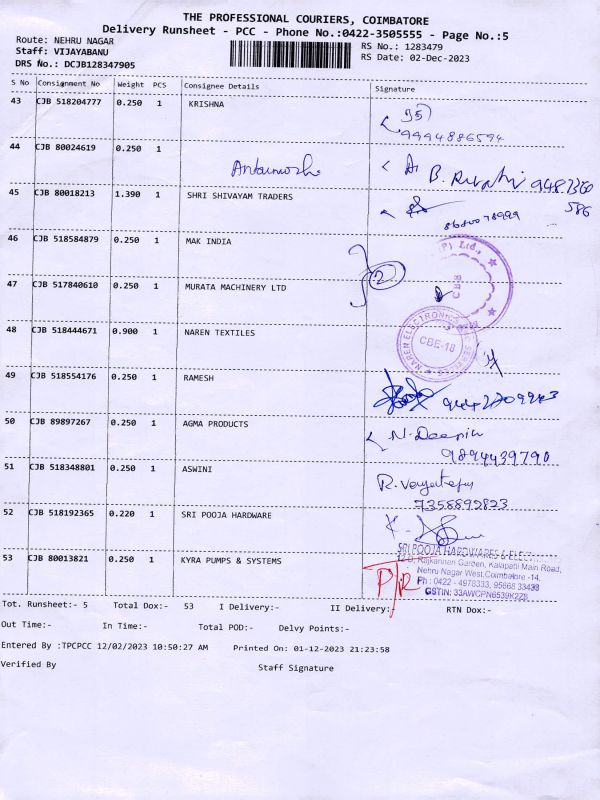 THE PROFESSIONAL COURIERS, COIMBATORE
Delivery Runsheet - PCC - Phone No.:0422-3505555 - Page No.:5
Route: NEHRU NAGAR
Staff: VIJAYABANU
DRS No.: DCJB128347905
RS No.: 1283479
RS Date: 02-Dec-2023
S No Consignment No Weight PCS Consignee Details Signature
43 CJB 518204777 0.250 1 KRISHNA
9994886594
44 CJB 80024619 0.250 1
45 CJB 80018213 1.390 1 SHRI SHIVAYAM TRADERS
586
46 CJB 518584879 0.250 1 MAK INDIA
2
(P) Ltd.,
47 CJB 517840610 0.250 1 MURATA MACHINERY LTD
48 CJB 518444671 0.900 1 NAREN TEXTILES
NAREN ELECTRONICS
CBE-18
49 CJB 518554176 0.250 1 RAMESH
50 CJB 89897267 0.250 1 AGMA PRODUCTS
N. Deepin
9894439790
51 CJB 518348801 0.250 1 ASWINI
7358892823
52 CJB 518192365 0.220 1 SRI POOJA HARDWARE
SRI POOJA HARDWARES & ELECT
Rajkannan Garden, Kalapatti Main Road,
Nehru Nagar West, Coimbatore -14,
Ph : 0422 - 4978333, 95668 33433
GSTIN: 33AWCPN6539K2Z8
53 CJB 80013821 0.250 1 KYRA PUMPS & SYSTEMS
Tot. Runsheet:- 5 Total Dox:- 53 I Delivery:- II Delivery: RTN Dox:-
Out Time:- In Time:- Total POD:- Delvy Points:-
Entered By :TPCPCC 12/02/2023 10:50:27 AM Printed On: 01-12-2023 21:23:58
Verified By Staff Signature